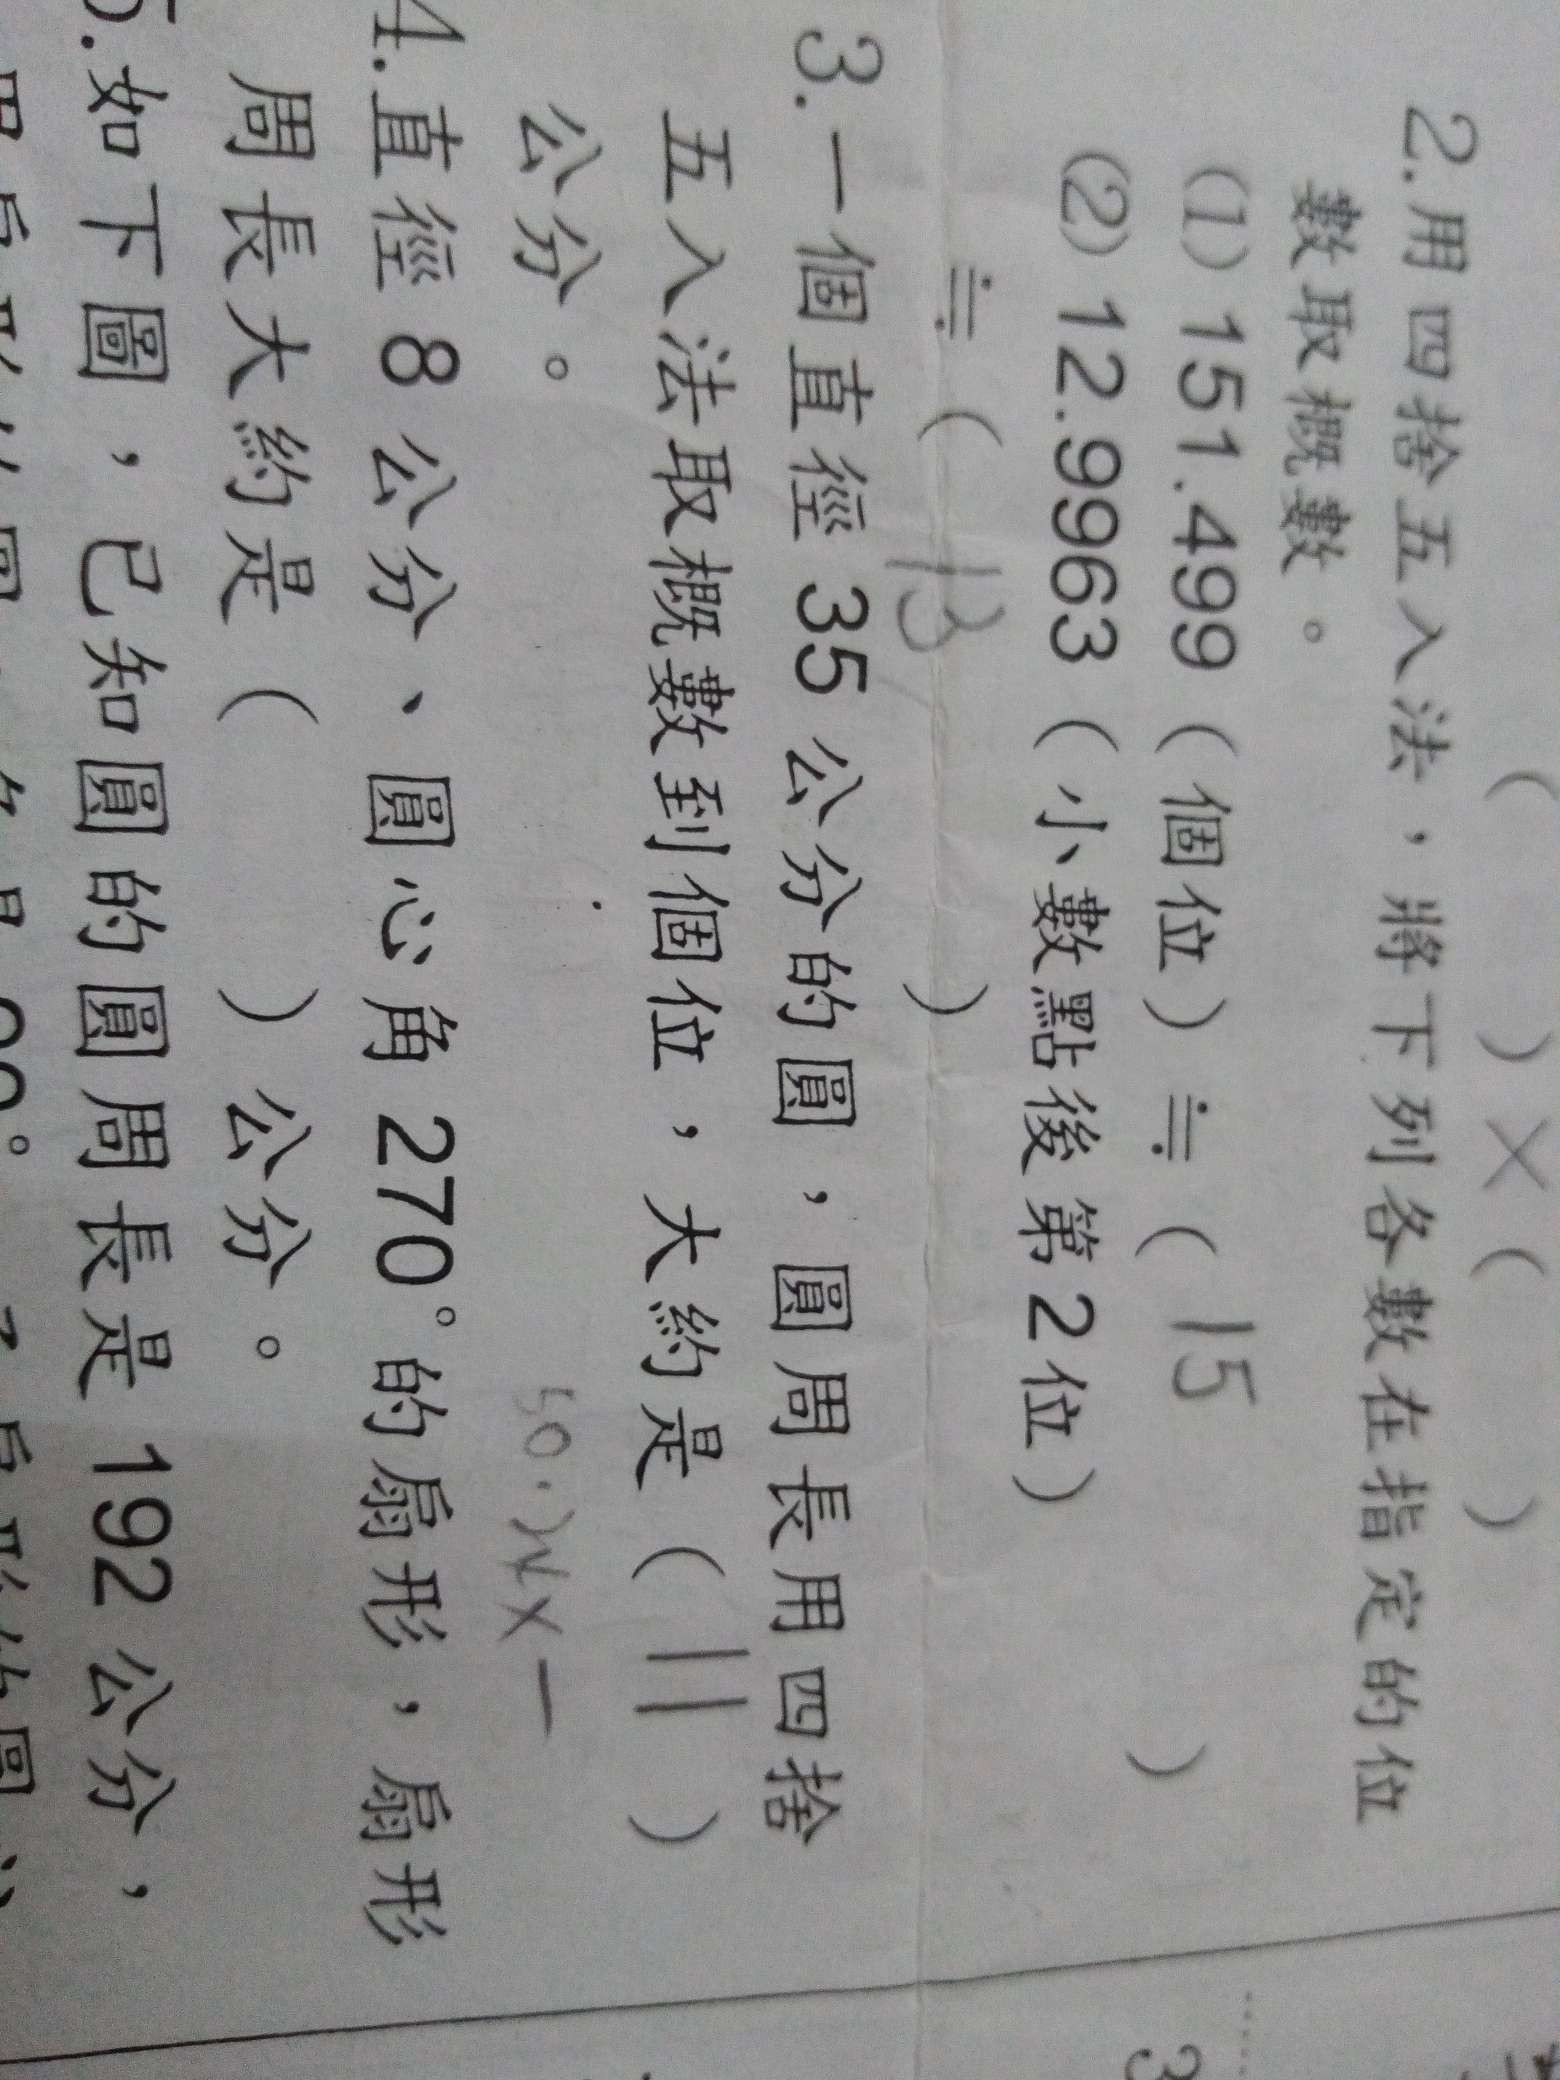 (　　)×(　　)
2.用四捨五入法，將下列各數在指定的位
數取概數。
(1)151.499(個位)≒(15　　)
(2)12.9963(小數點後第2位)
≒(13　　)
3.一個直徑35公分的圓，圓周長用四捨
五入法取概數到個位，大約是(11　)
公分。
4.直徑8公分、圓心角270°的扇形，扇形
周長大約是(　　)公分。
5.如下圖，已知圓的圓周長是192公分，
3